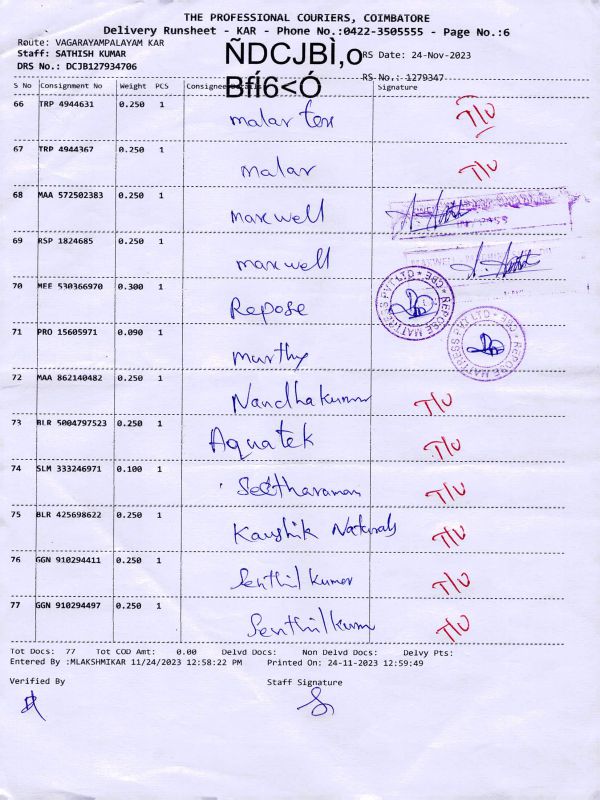 THE PROFESSIONAL COURIERS, COIMBATORE
Delivery Runsheet - KAR - Phone No.:0422-3505555 - Page No.:6
Route: VAGARAYAMPALAYAM KAR
Staff: SATHISH KUMAR
DRS No.: DCJB127934706
ÑDCJBÌ,o
BfÍ6<Ó
RS Date: 24-Nov-2023
RS No.: 1279347
S No Consignment No Weight PCS Consignee Signature
66 TRP 4944631 0.250 1 malar T/U
67 TRP 4944367 0.250 1 malar T/U
68 MAA 572502383 0.250 1 maxwell
69 RSP 1824685 0.250 1 maxwell
70 MEE 530366970 0.300 1 Repose REPOSE MATTRESS PVT LTD * CBE *
71 PRO 15605971 0.090 1 murthy REPOSE MATTRESS PVT LTD * CBE *
72 MAA 862140482 0.250 1 Nandhakumar T/U
73 BLR 5004797523 0.250 1 Aquatek T/U
74 SLM 333246971 0.100 1 Seetharaman T/U
75 BLR 425698622 0.250 1 Kaushik Naturals T/U
76 GGN 910294411 0.250 1 Senthil kumar T/U
77 GGN 910294497 0.250 1 Senthilkum T/U
Tot Docs: 77 Tot COD Amt: 0.00 Delvd Docs: Non Delvd Docs: Delvy Pts:
Entered By :MLAKSHMIKAR 11/24/2023 12:58:22 PM Printed On: 24-11-2023 12:59:49
Verified By Staff Signature